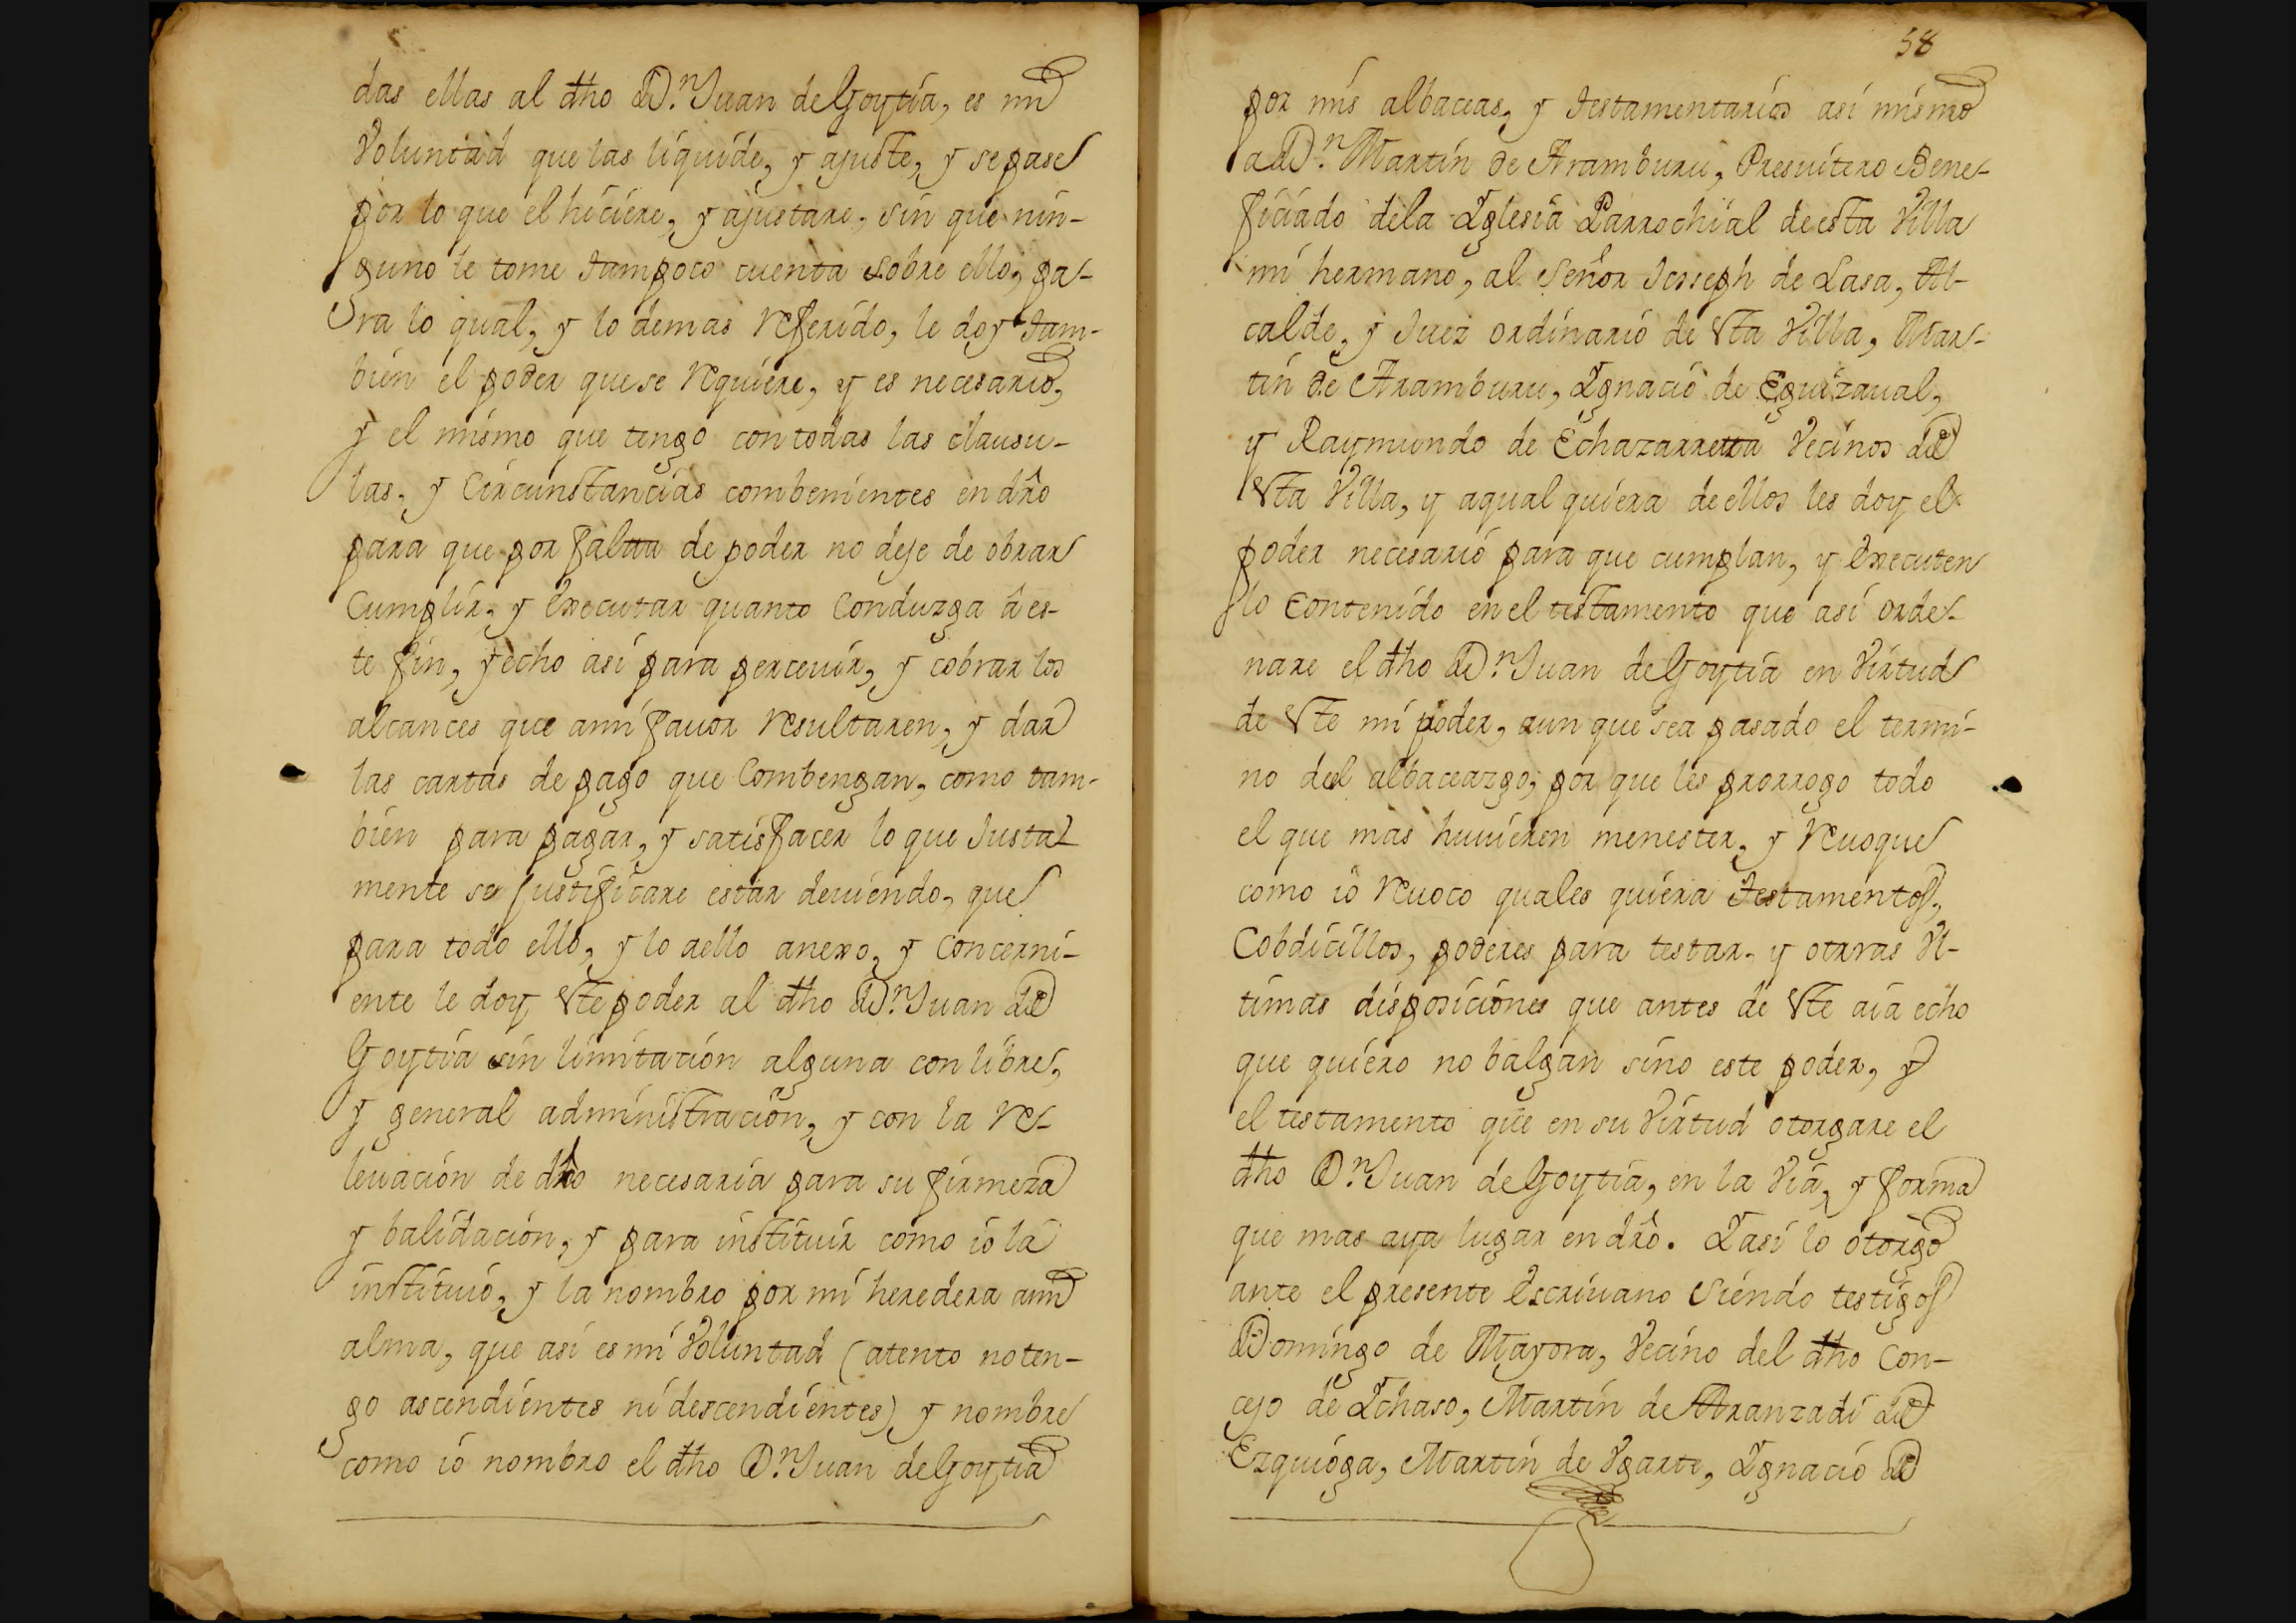 das ellas al dho Dn. Juan de Goytia, es mi
Voluntad que las liquide, y ajuste, y se pase
por lo que el hiciere, y ajustare, sin que nin-
guno le tome tampoco cuenta sobre ello, pa-
ra lo qual, y lo demas referido, le doy tam-
bien el poder que se requiere, y es necesario,
y el mismo que tengo con todas las clausu-
las, y Circunstancias combenientes en dro
para que por falta de poder no deje de obrar
Cumplir, y executar quanto Conduzga â es-
te fin, y echo asi para percevir, y cobrar los
alcances que a mi favor resultaren, y dar
las cartas de pago que Combengan, como tam-
bien para pagar, y satisfacer lo que Justa-
mente se justificare estar deviendo, que
para todo ello, y lo aello anexo, y Concerni-
ente le doy este poder al dho Dn. Juan de
Goytia sin limitacion alguna con libre,
y general administracion, y con la re-
levacion de dro necesaria para su firmeza
y balidacion, y para instituir como io la
instituio, y la nombro por mi heredera a mi
alma, que asi es mi Voluntad (atento no ten-
go ascendientes ni descendientes) y nombre
como io nombro el dho Dn. Juan de Goytia
58
por mis albaceas, y testamentarios asi mismo
a Dn. Martin de Aramburu, Presvitero Bene-
ficiado dela Iglesia Parrochial de esta Villa
mi hermano, al Señor Josseph de Lasa, Al-
calde, y Juez ordinario de esta Villa, Mar-
tin de Aramburu, Ignacio de Eguizaval,
y Raymundo de Echazarreta Vecinos de
esta Villa, y aqual quiera de ellos les doy el
poder necesario para que cumplan, y executen
lo Contenido en el testamento que asi orde-
nare el dho Dn. Juan de Goytia en Virtud
de este mi poder, aun que sea pasado el termi-
no del albaceazgo, por que les prorrogo todo
el que mas huvieren menester, y revoque
como io revoco quales quiera testamentos,
Cobdicillos, poderes para testar, y otras Vl-
timas disposiciones que antes de este aia echo
que quiero no balgan sino este poder, y
el testamento que en su Virtud otorgare el
dho Dn. Juan de Goytia, en la Via, y forma
que mas aya lugar en dro. Y asi lo otorgo
ante el presente escrivano Siendo testigos
Domingo de Mayora, Vecino del dho Con-
cejo de Ychaso, Martin de Aranzadi de
Ezquioga, Martin de Vgarte, Ignacio de